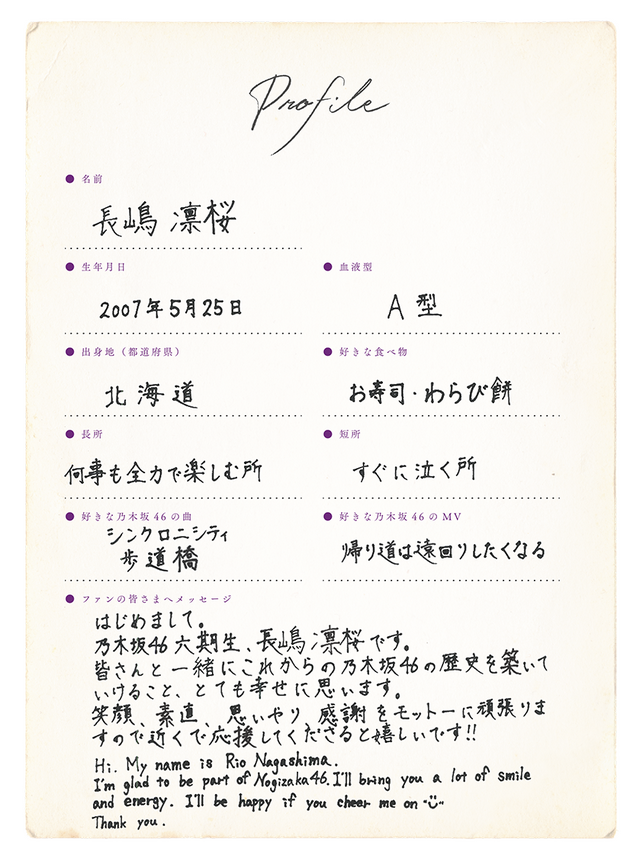 Profile
名前
長嶋 凛桜
生年月日
2007年5月25日
血液型
A型
出身地（都道府県）
北海道
好きな食べ物
お寿司・わらび餅
長所
何事も全力で楽しむ所
短所
すぐに泣く所
好きな乃木坂46の曲
シンクロニシティ
歩道橋
好きな乃木坂46のMV
帰り道は遠回りしたくなる
ファンの皆さまへメッセージ
はじめまして。
乃木坂46 六期生、長嶋凛桜です。
皆さんと一緒にこれからの乃木坂46の歴史を築いて
いけること、とても幸せに思います。
笑顔、素直、思いやり、感謝をモットーに頑張りま
すので近くで応援してくださると嬉しいです!!
Hi. My name is Rio Nagashima.
I'm glad to be part of Nogizaka46. I'll bring you a lot of smile
and energy. I'll be happy if you cheer me on
Thank you.